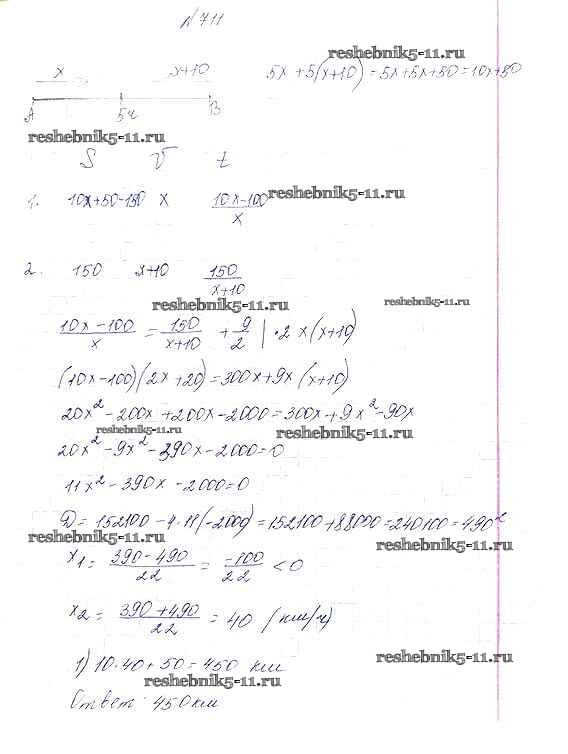 № 711
reshebnik5-11.ru
x x+10 5x + 5(x+10) = 5x+5x+50 = 10x+50
A 5ч B
reshebnik5-11.ru
S V t
1. 10x+50-150 x 10x-100/x
reshebnik5-11.ru
2. 150 x+10 150/x+10
reshebnik5-11.ru reshebnik5-11.ru
10x-100/x = 150/x+10 + 9/2 | · 2x(x+10)
(10x-100)(2x+20) = 300x+9x(x+10)
20x² - 200x + 200x - 2000 = 300x + 9x² - 90x
reshebnik5-11.ru reshebnik5-11.ru
20x² - 9x² - 390x - 2000 = 0
11x² - 390x - 2000 = 0
D = 152100 - 4·11(-2000) = 152100 + 88000 = 240100 = 490²
reshebnik5-11.ru reshebnik5-11.ru
x₁ = 390-490/22 = -100/22 < 0
x₂ = 390+490/22 = 40 (км/ч)
1) 10·40+50 = 450 км
reshebnik5-11.ru
reshebnik5-11.ru
Ответ: 450 км